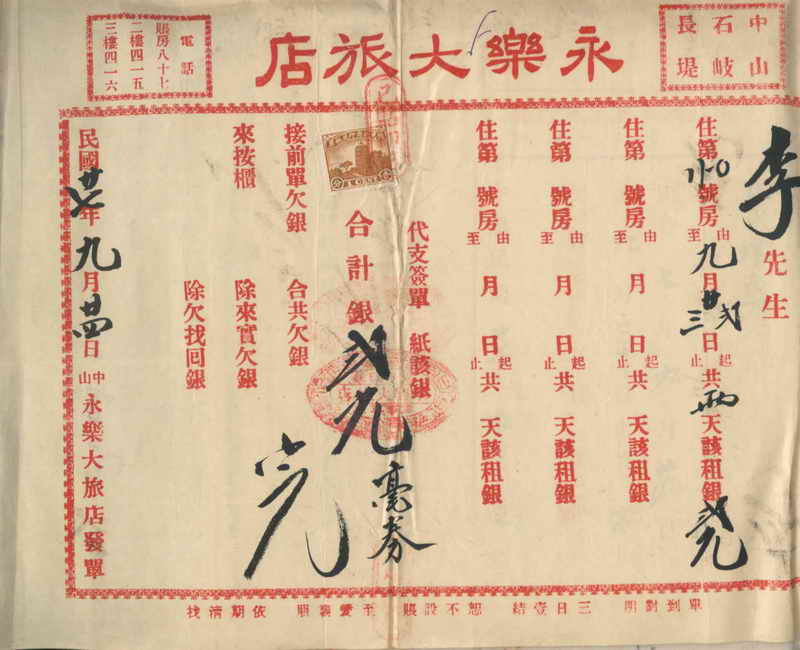 永樂大旅店
中山
石岐
長堤
電話
賬房八十七
二樓四一五
三樓四一六
李先生
住第 號房由九月廿日起共兩天該租銀
至 止
住第 號房由 月 日起共 天該租銀
至 止
住第 號房由 月 日起共 天該租銀
至 止
住第 號房由 月 日起共 天該租銀
至 止
代支簽單 紙該銀
合計銀 毫券
接前單欠銀 合共欠銀
來按櫃 除來實欠銀
除欠找回銀
民國廿七年九月廿四日中山永樂大旅店發單
單到對期 三日壹結 恕不設賬 至愛親朋 依期清找